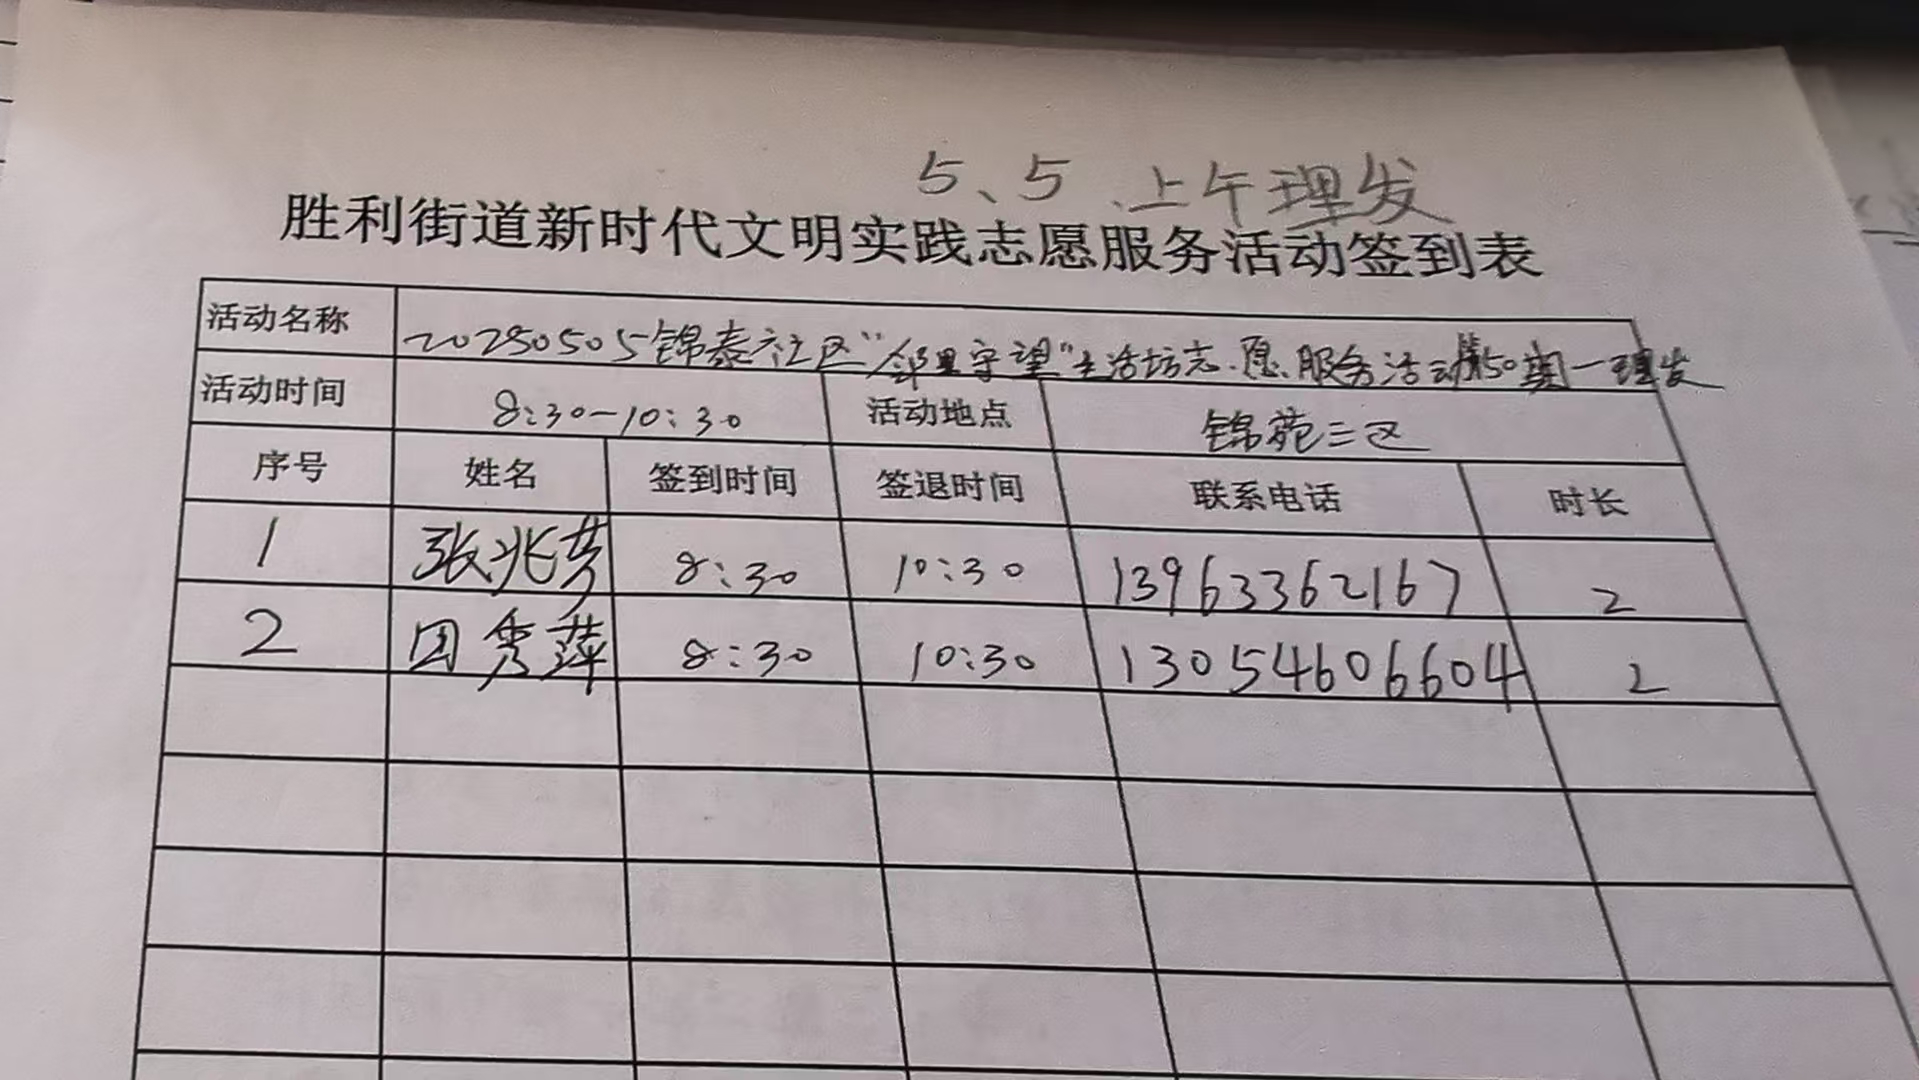 5、5、上午理发
胜利街道新时代文明实践志愿服务活动签到表
活动名称 20250505锦泰社区“邻里守望”生活坊志愿服务活动第50期一理发
活动时间 8:30—10:30 活动地点 锦苑三区
序号 姓名 签到时间 签退时间 联系电话 时长
1 张兆芳 8:30 10:30 13963362167 2
2 田秀萍 8:30 10:30 13054606604 2